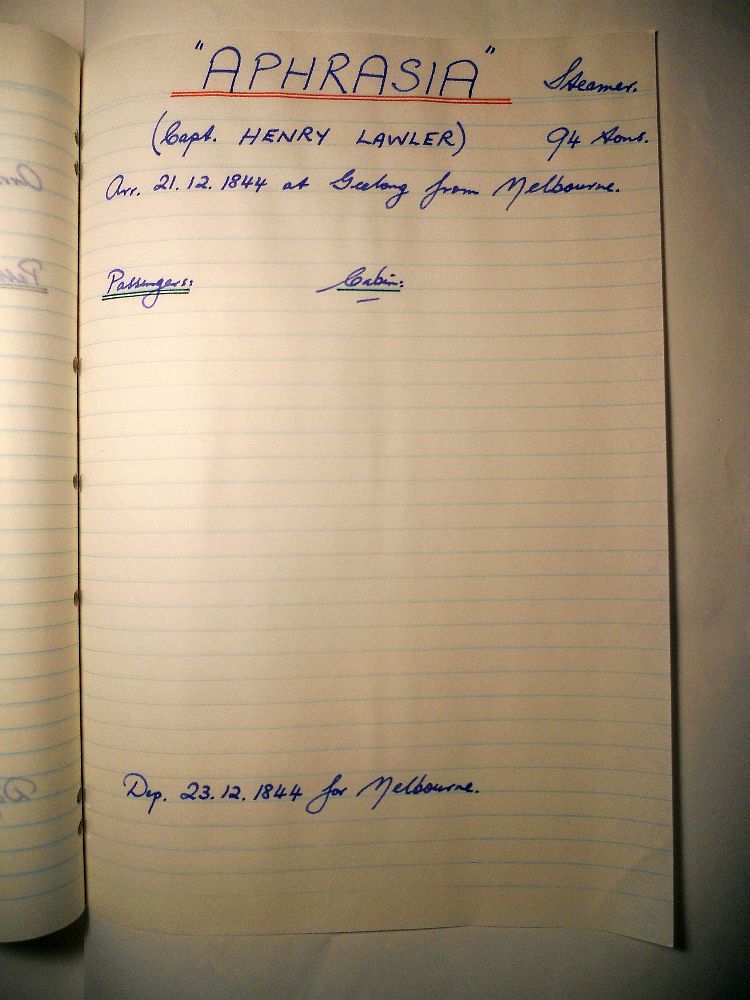 "APHRASIA" Steamer.
(Capt. HENRY LAWLER) 94 tons.
Arr. 21.12.1844 at Geelong from Melbourne.
Passengers: Cabin:
Dep. 23.12.1844 for Melbourne.